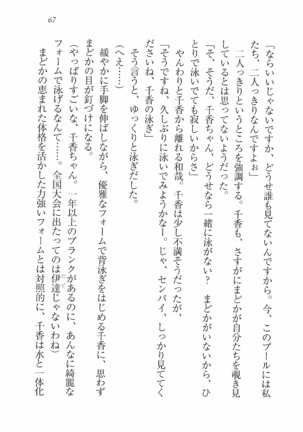 67
「ならいいじゃないですか、どうせ誰も見てないんですから。今、このプールには私
たち、二人っきりなんですよぉ」
二人っきりというところを強調する。千香も、さすがにまどかが自分たちを覗き見
しているとは思ってないようだった。
「そ、そうだ、千香ちゃん、どうせなら一緒に泳がない? まどかがいないから、ひ
とりで泳いでても寂しいからさ」
やんわりと千香から離れる和哉。千香は少し不満そうだったが、
「そうですね、久しぶりに泳いでみようかなー。じゃ、センパイ、しっかり見ててく
ださいね、千香の泳ぎ」
そう言うと、ゆっくりと泳ぎだした。
(へえ……)
緩やかに手脚を伸ばしながら、優雅なフォームで背泳ぎをはじめる千香に、思わず
まどかの目が釘づけになる。
(やっぱりすごいな、千香ちゃん。一年以上のブランクがあるのに、あんなに綺麗な
フォームで泳げるなんて……。全国大会に出たってのは伊達じゃないわね)
まどかの恵まれた体格を活かした力強いフォームとは対照的に、千香は水と一体化